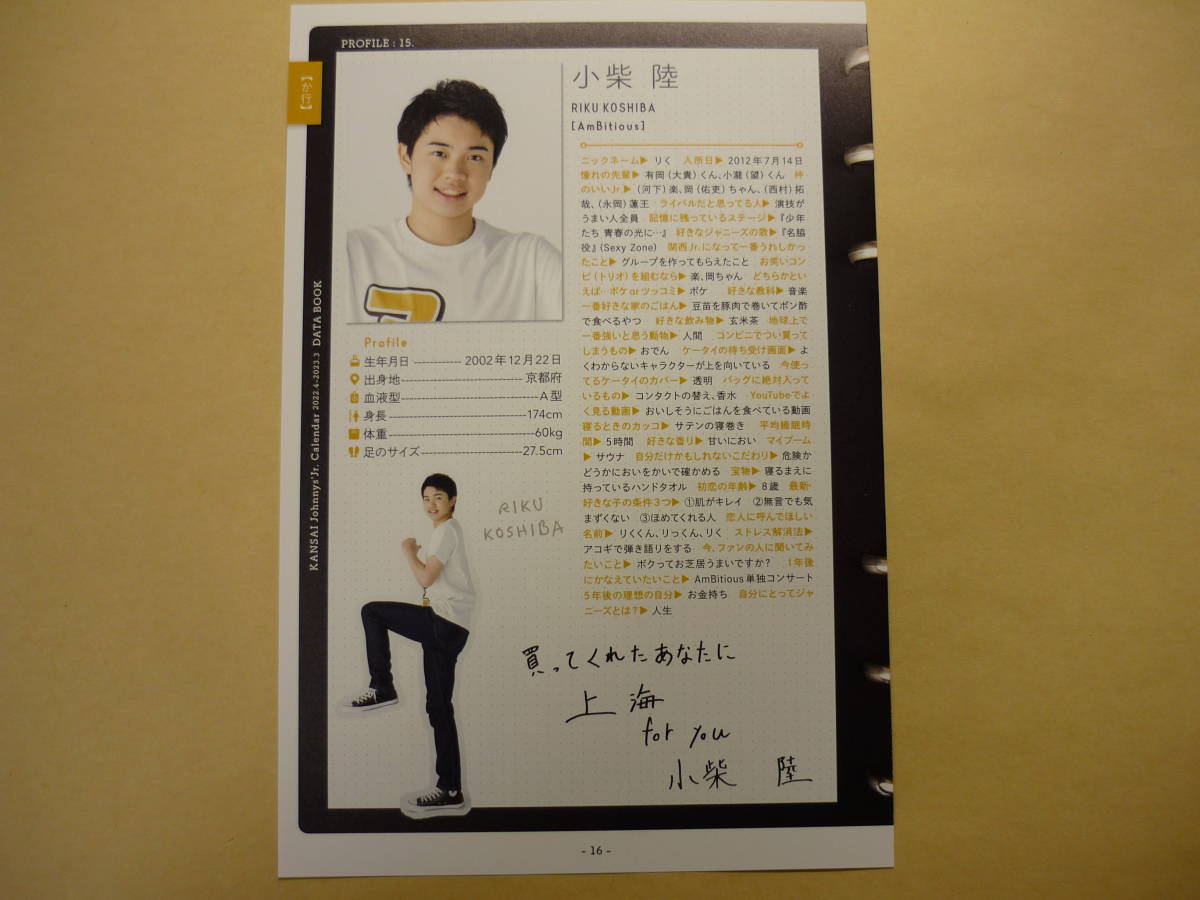 PROFILE : 15.
【か行】
小柴 陸
RIKU KOSHIBA
[AmBitious]
ニックネーム▶ りく 入所日▶ 2012年7月14日
憧れの先輩▶ 有岡（大貴）くん、小瀧（望）くん 仲
のいいJr.▶（河下）楽、岡（佑吏）ちゃん、（西村）拓
哉、（永岡）蓮王 ライバルだと思ってる人▶ 演技が
うまい人全員 記憶に残っているステージ▶『少年
たち 青春の光に…』 好きなジャニーズの歌▶『名脇
役』（Sexy Zone） 関西Jr.になって一番うれしかっ
たこと▶ グループを作ってもらえたこと お笑いコン
ビ（トリオ）を組むなら▶ 楽、岡ちゃん どちらかとい
えば…ボケorツッコミ▶ ボケ 好きな教科▶ 音楽
一番好きな家のごはん▶ 豆苗を豚肉で巻いてポン酢
で食べるやつ 好きな飲み物▶ 玄米茶 地球上で
一番強いと思う動物▶ 人間 コンビニでつい買って
しまうもの▶ おでん ケータイの待ち受け画面▶ よ
くわからないキャラクターが上を向いている 今使っ
てるケータイのカバー▶ 透明 バッグに絶対入って
いるもの▶ コンタクトの替え、香水 YouTubeでよ
く見る動画▶ おいしそうにごはんを食べている動画
寝るときのカッコ▶ サテンの寝巻き 平均睡眠時
間▶ 5時間 好きな香り▶ 甘いにおい マイブーム
▶ サウナ 自分だけかもしれないこだわり▶ 危険か
どうかにおいをかいで確かめる 宝物▶ 寝るまえに
持っているハンドタオル 初恋の年齢▶ 8歳 最新・
好きな子の条件3つ▶ ①肌がキレイ ②無言でも気
まずくない ③ほめてくれる人 恋人に呼んでほしい
名前▶ りくくん、りっくん、りく ストレス解消法▶
アコギで弾き語りをする 今、ファンの人に聞いてみ
たいこと▶ ボクってお芝居うまいですか? 1年後
にかなえていたいこと▶ AmBitious単独コンサート
5年後の理想の自分▶ お金持ち 自分にとってジャ
ニーズとは?▶ 人生
Profile
生年月日 ------------ 2002年12月22日
出身地------------------------------- 京都府
血液型-----------------------------------A型
身長-----------------------------------174cm
体重-------------------------------------60kg
足のサイズ--------------------------27.5cm
RIKU
KOSHIBA
KANSAI Johnnys' Jr. Calendar 2022.4-2023.3 DATA BOOK
買ってくれたあなたに
上海
for you
小柴 陸
- 16 -